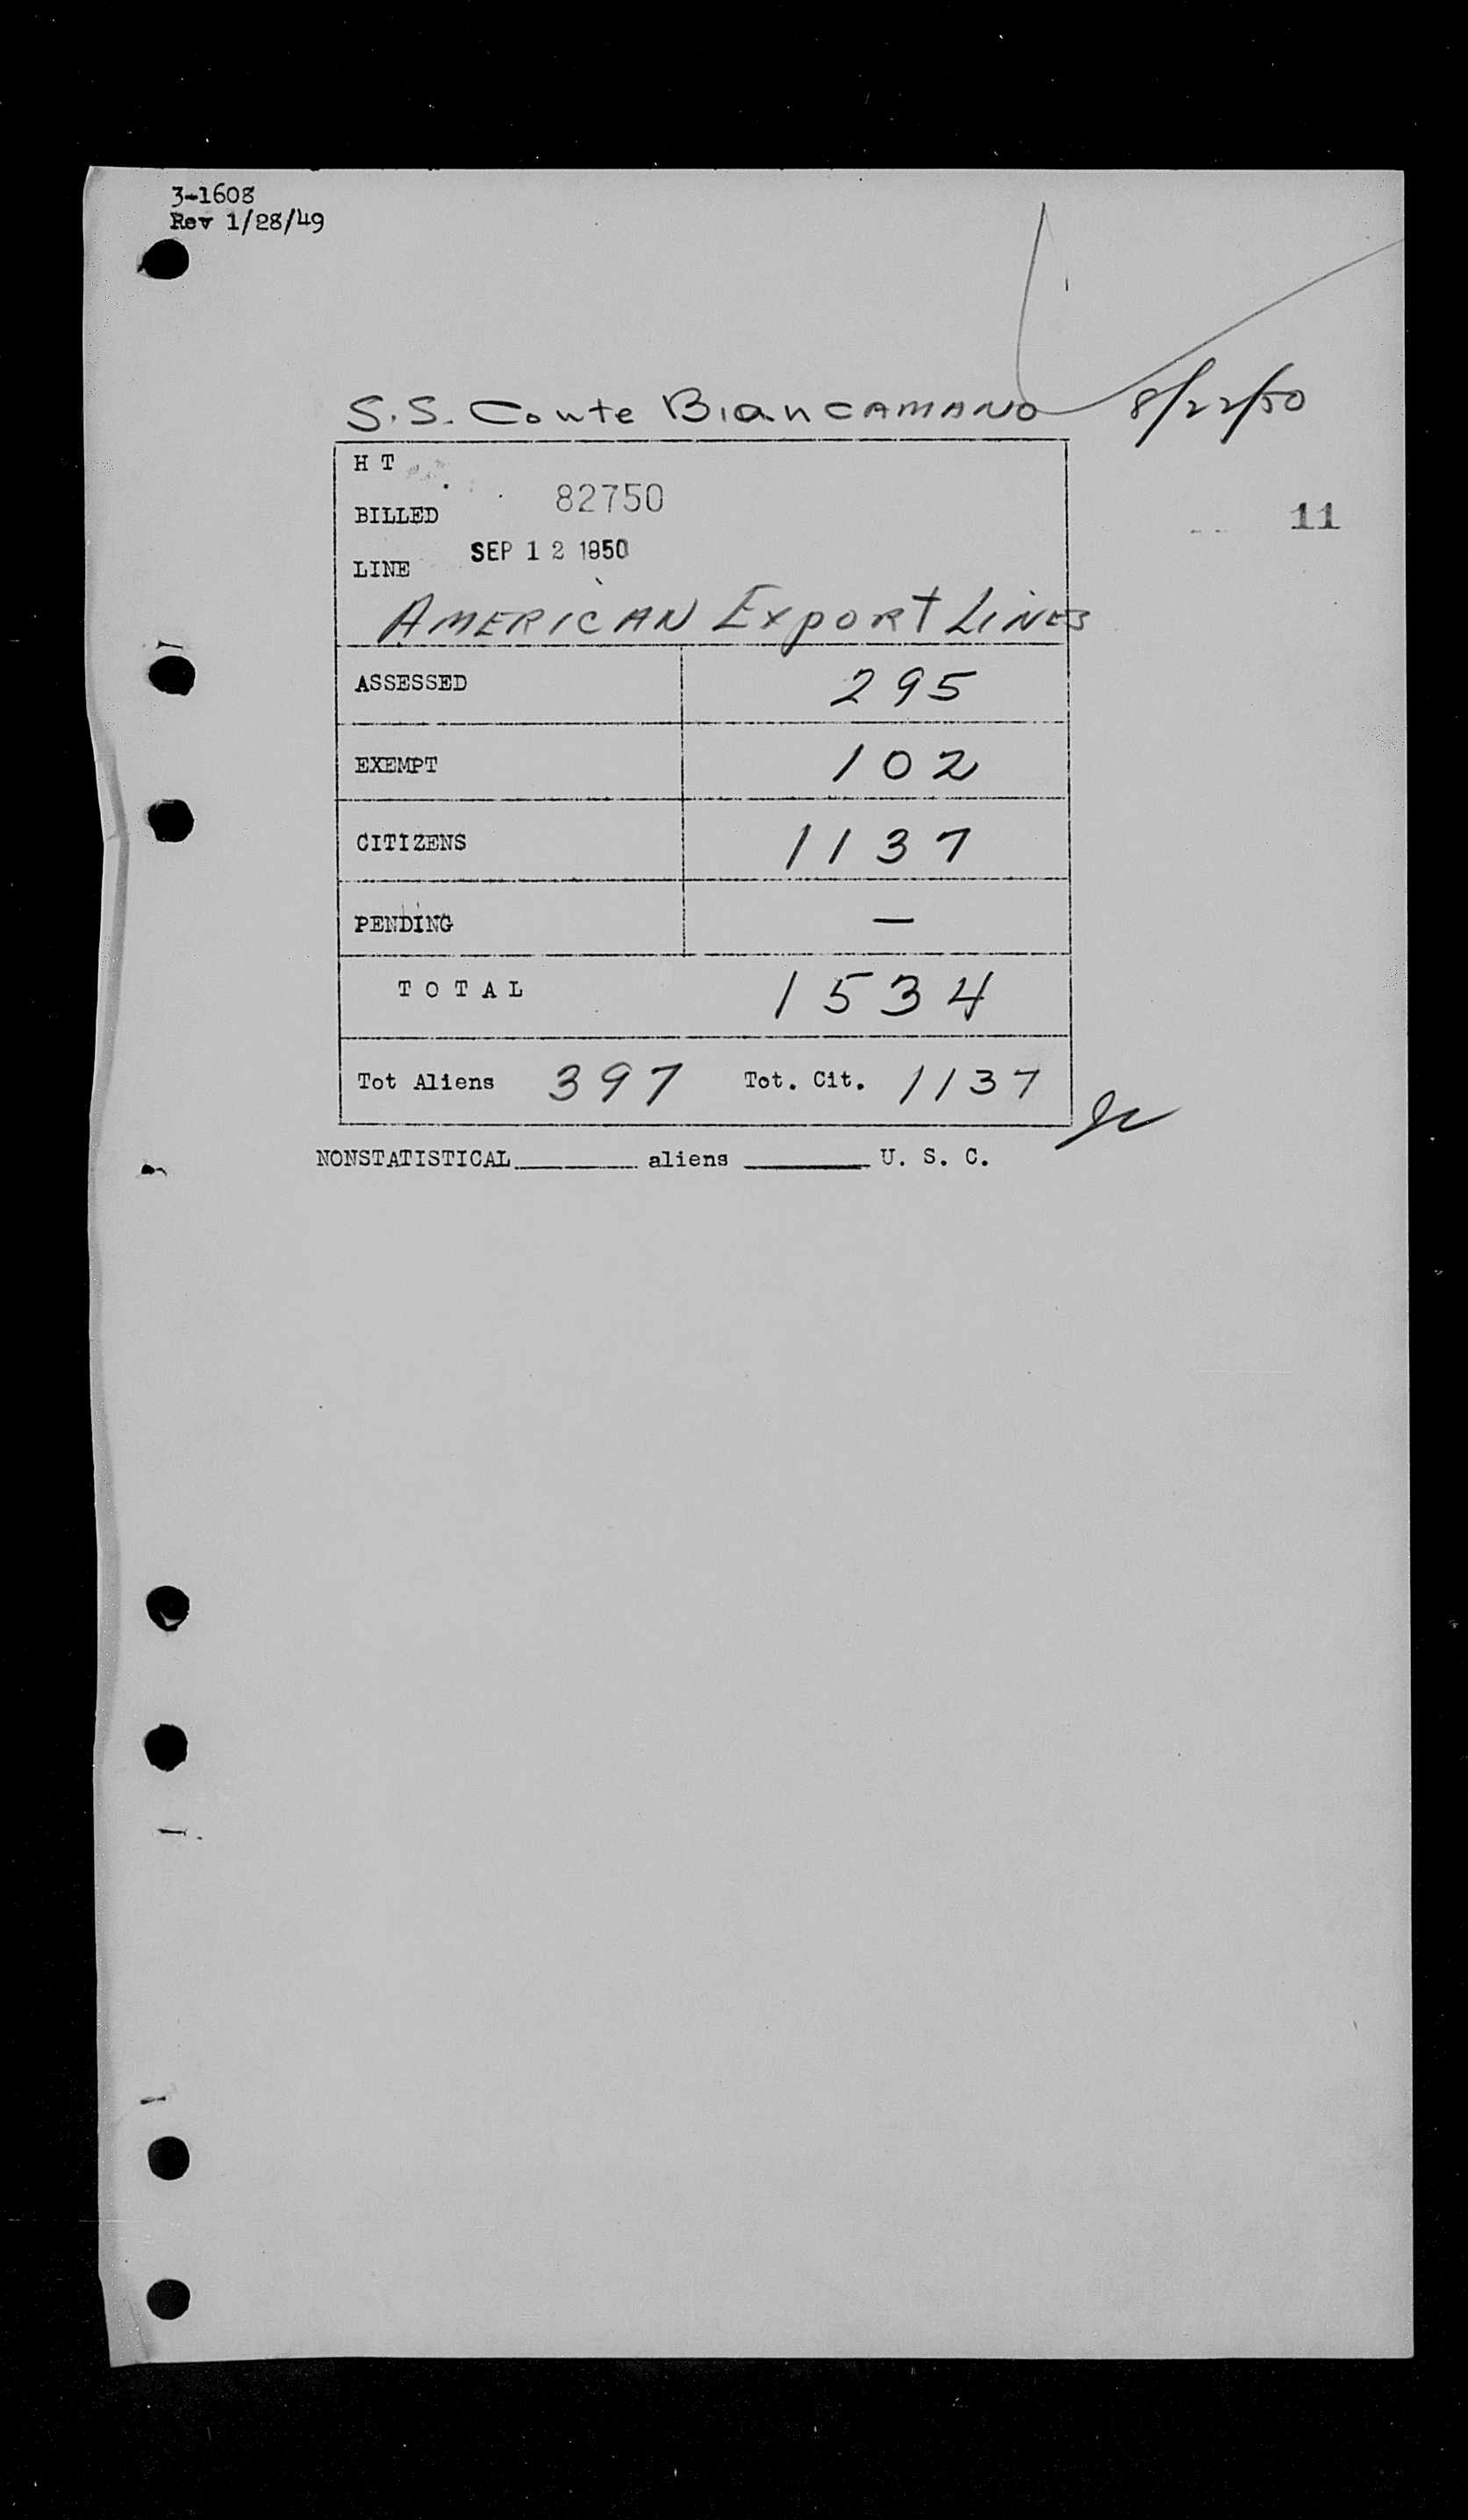 3-1608
Rev 1/28/49
S.S. Conte BianCAMANO 8/22/50
H T
82750
BILLED
11
SEP 12 1950
LINE
AMERICAN EXpORT LINES
ASSESSED 295
EXEMPT 102
CITIZENS 1137
PENDING —
TOTAL 1534
Tot Aliens 397 Tot. Cit. 1137
NONSTATISTICAL________ aliens ________ U. S. C.